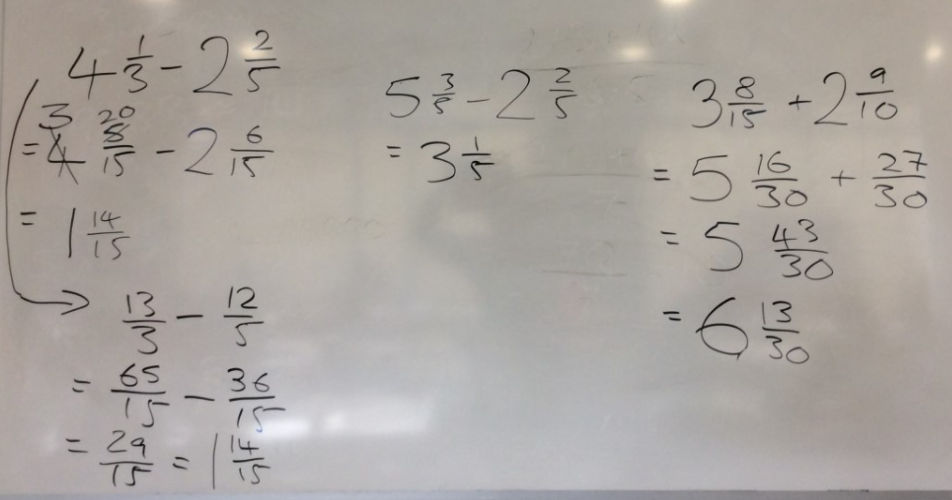 4 1/3 - 2 2/5
= 3 20/15 - 2 6/15
= 1 14/15
13/3 - 12/5
= 65/15 - 36/15
= 29/15 = 1 14/15
5 3/5 - 2 2/5
= 3 1/5
3 8/15 + 2 9/10
= 5 16/30 + 27/30
= 5 43/30
= 6 13/30